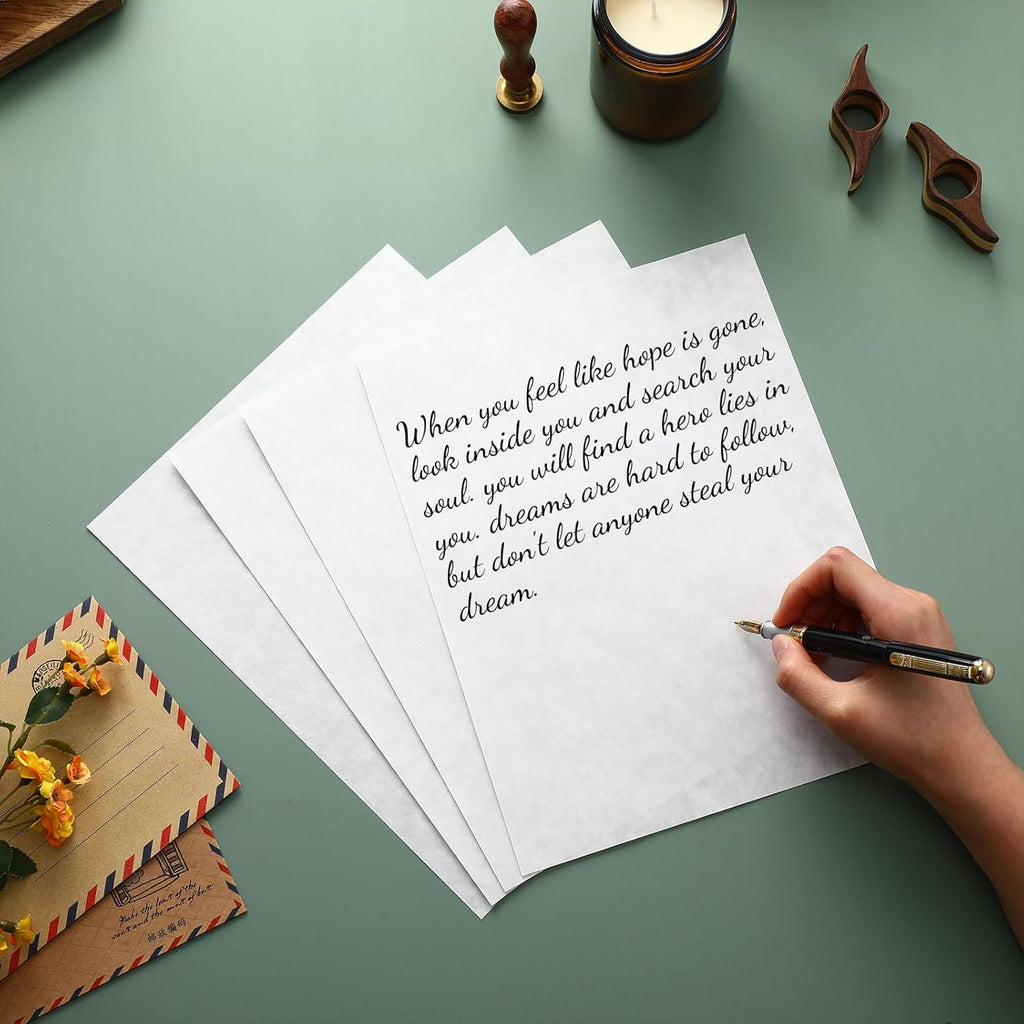 When you feel like hope is gone,
look inside you and search your
soul. you will find a hero lies in
you. dreams are hard to follow,
but don't let anyone steal your
dream.
Make the least of the
worst and the most of best
邮政编码